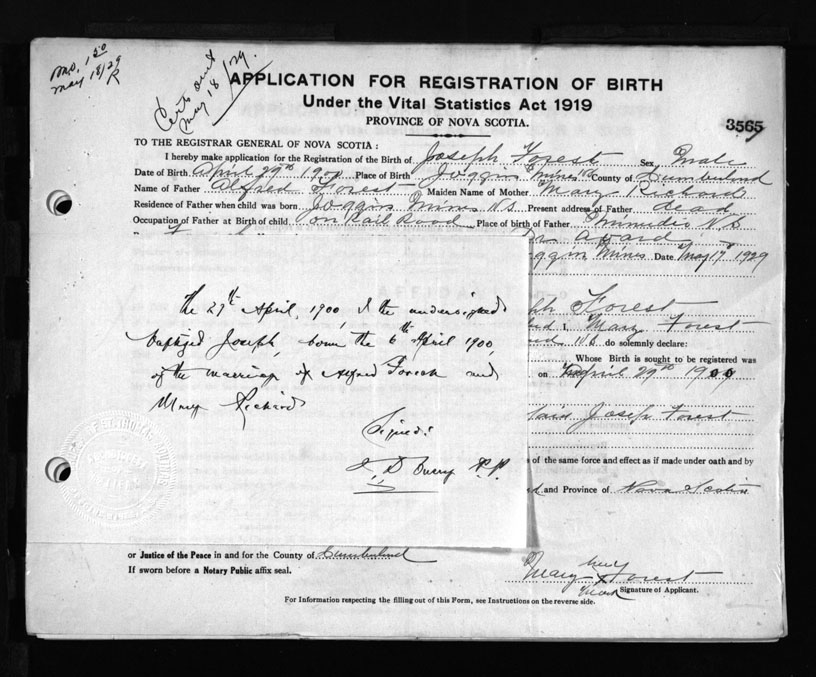 May 18/29
R
Certs out
May 18/29.
APPLICATION FOR REGISTRATION OF BIRTH
Under the Vital Statistics Act 1919
PROVINCE OF NOVA SCOTIA.
3565
TO THE REGISTRAR GENERAL OF NOVA SCOTIA:
I hereby make application for the Registration of the Birth of Joseph Forest Sex Male
Date of Birth April 29th 1900 Place of Birth Joggins Mines NS County of Cumberland
Name of Father Alfred Forest Maiden Name of Mother Mary Richard
Residence of Father when child was born Joggins Mines N.S. Present address of Father dead
Occupation of Father at Birth of child on Rail Road Place of birth of Father N B
Dr Avard
oggin Mines Date May 17th 1929
The 29th April, 1900, I the undersigned
baptized Joseph, born the 6th April 1900,
of the marriage of Alfred Forest and
Mary Richard
Signed:
P.P.
ph Forest
I, Mary Forest
N S do solemnly declare:
Whose Birth is sought to be registered was
on April 29th 1900
said Joseph Forest
of the same force and effect as if made under oath and by
and Province of Nova Scotia
or Justice of the Peace in and for the County of Cumberland
If sworn before a Notary Public affix seal.
her
Mary X Forest
mark
Signature of Applicant.
For Information respecting the filling out of this Form, see Instructions on the reverse side.